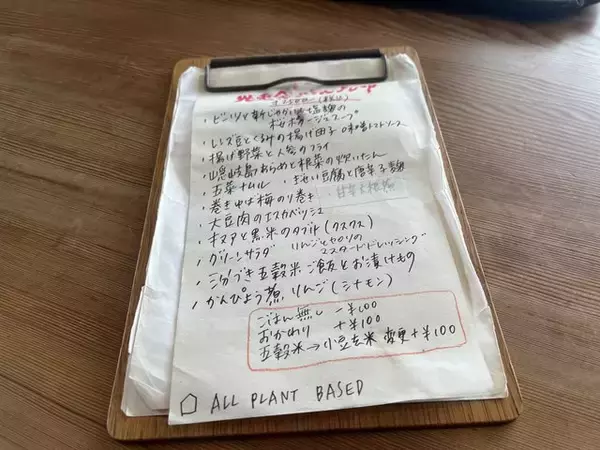 ・ビーツと新じゃがと塩麹の
ポタージュスープ
・レンズ豆とくるみの揚げ団子 味噌トマトソース
・揚げ野菜と人参のフライ
あらめと根菜の炊いたん
・五菜ナムル ・きせい豆腐と唐辛子
・巻き 梅のり巻き
・大豆肉のエスカベッシュ
・キヌアと黒米のタブレ(クスクス)
・グリーンサラダ りんごとセロリの
マスタードドレッシング
・こがつき五穀米ご飯とお漬けもの
・かんぴょう煮 りんご(シナモン)
ごはん無し -¥100
おかわり +¥100
五穀米→小豆玄米 変更+¥100
ALL PLANT BASED